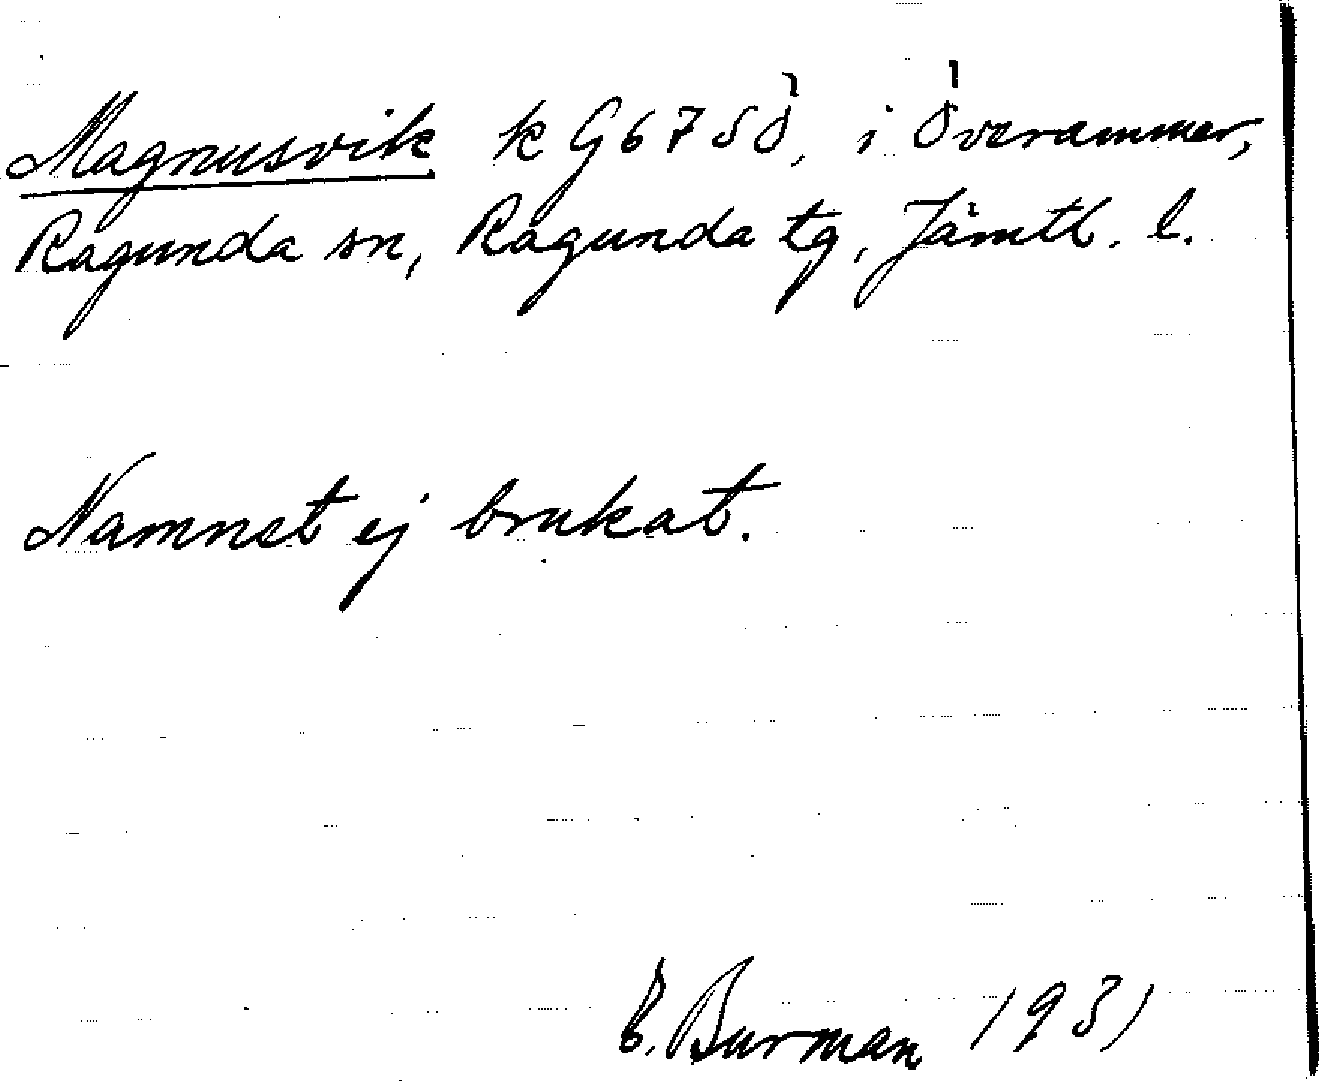 Magnusvik k G6750, i Överammer,
Ragunda sn, Ragunda tg, Jämtl. l.
Namnet ej brukat.
E. Burman 1931